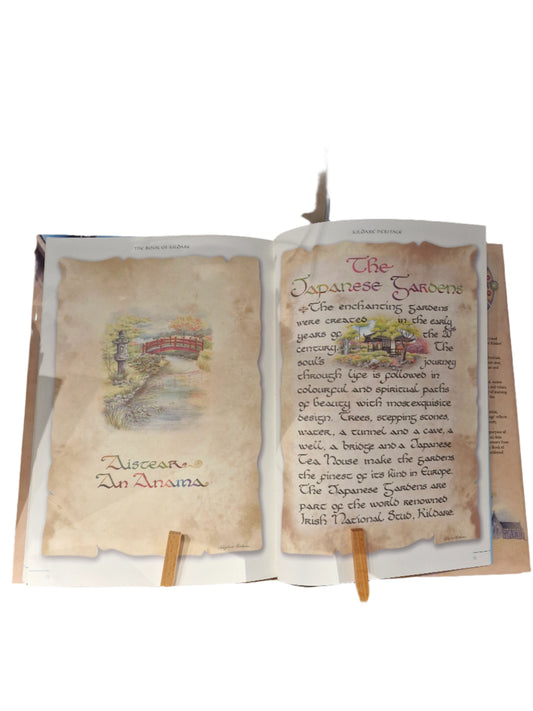 THE BOOK OF KILDARE
Aistear
An Anama
KILDARE HERITAGE
The
Japanese Gardens
The enchanting gardens
were created in the early
years of the 20th
century. The
soul's journey
through life is followed in
colourful and spiritual paths
of beauty with most exquisite
design. Trees, stepping stones,
water, a tunnel and a cave, a
well, a bridge and a Japanese
Tea House make the gardens
the finest of its kind in Europe.
The Japanese Gardens are
part of the world renowned
Irish National Stud, Kildare.